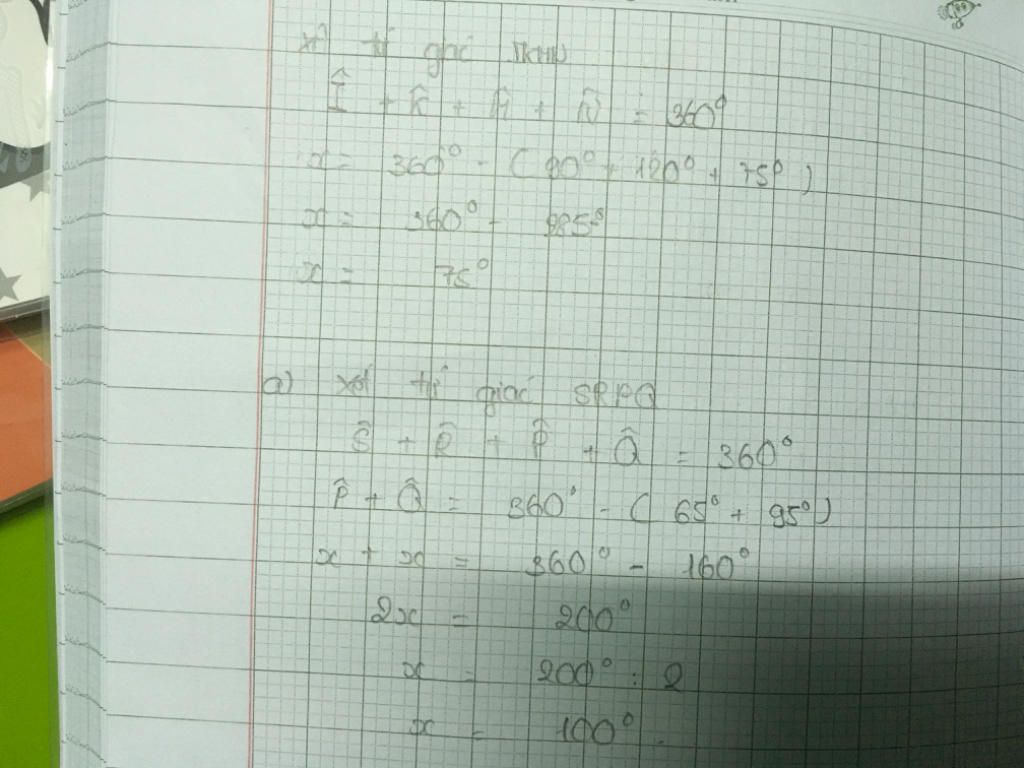 xét tứ giác IKMN
Î + K̂ + M̂ + N̂ = 360°
x = 360° - ( 90° + 120° + 75° )
x = 360° - 285°
x = 75°
a) xét tứ giác SRPQ
Ŝ + R̂ + P̂ + Q̂ = 360°
P̂ + Q̂ = 360° - ( 65° + 95° )
x + x = 360° - 160°
2x = 200°
x = 200° : 2
x = 100° .